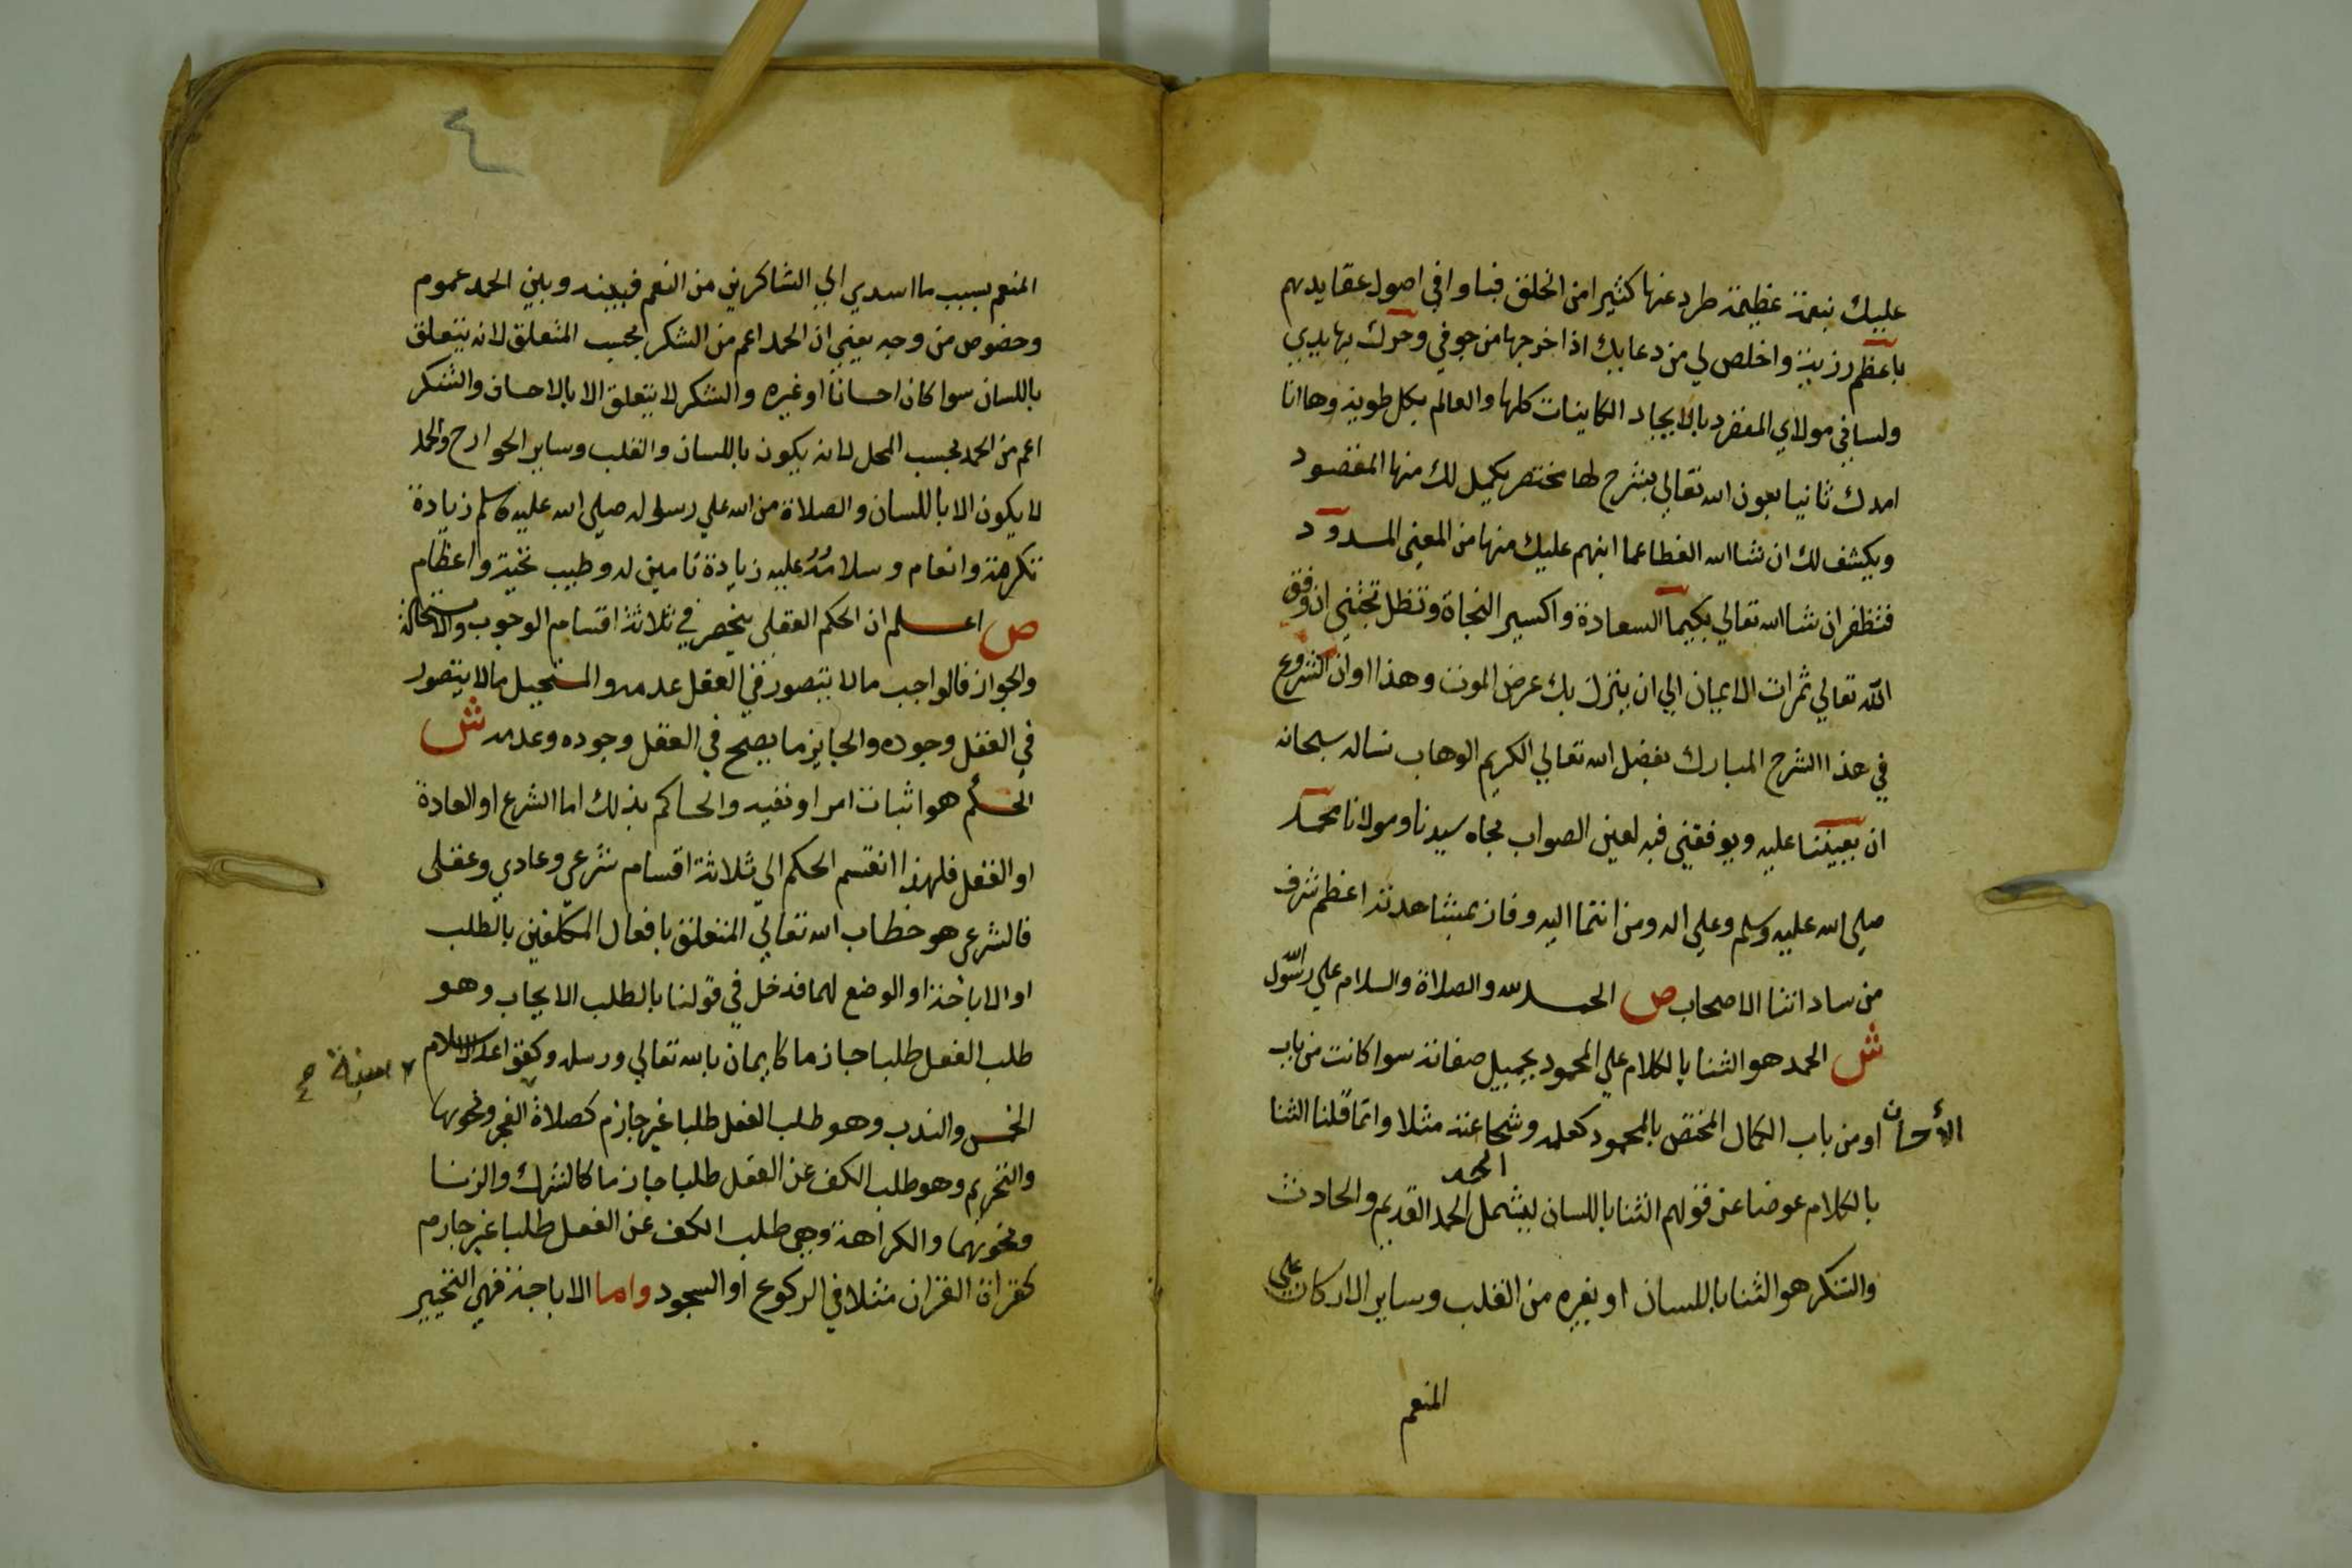 عليك نعمة عظيمة طرد عنها كثيرا من الخلق فباوا في اصول عقايدهم
باعظم رزية واخلص لي من دعايك اذا اخرجها من جوفي وحرك بها يدي
ولساني مولاي المنفرد بالايجاد الكاينات كلها والعالم بكل طوية وها انا
امدك ثانيا بعون الله تعالي بشرح لها مختصر يكمل لك منها المقصود
ويكشف لك ان شا الله الغطا عما انبهم عليك منها من المعني المسدود
فتظفر ان شا الله تعالي بكيميا السعادة واكسير النجاة وتظل تجتني ان وفق
الله تعالي ثمرات الايمان الي ان ينزل بك عرض الموت وهذا اوان الشروع
في هذا الشرح المبارك بفضل الله تعالي الكريم الوهاب نساله سبحانه
ان يعيننا عليه ويوفقني فيه لعين الصواب بجاه سيدنا ومولانا محمد
صلي الله عليه وسلم وعلي اله ومن انتما اليه وفاز بمشاهدته اعظم شرف
من ساداتنا الاصحاب ص الحمد لله والصلاة والسلام علي رسول الله
ش الحمد هو الثنا بالكلام علي المحمود بجميل صفاته سوا كانت من باب
الأحسان او من باب الكمال المختص بالمحمود كعلمه وشجاعته مثلا وانما قلنا الثنا
الحمد
بالكلام عوضا عن قولهم الثنا باللسان ليشمل الحمد القديم والحادث
والشكر هو الثنا باللسان او بغيره من القلب وساير الاركان علي
المنعم
٤
المنعم بسبب ما اسدي الي الشاكرين من النعم فبينه وبين الحمد عموم
وخصوص من وجه يعني ان الحمد اعم من الشكر بحسب المتعلق لانه يتعلق
باللسان سوا كان احسانا او غيره والشكر لا يتعلق الا بالاحسان والشكر
اعم من الحمد بحسب المحل لانه يكون باللسان والقلب وساير الجوارح والحمد
لا يكون الا باللسان والصلاة من الله علي رسوله صلي الله عليه وسلم زيادة
تكرمة وانعام وسلامه عليه زيادة تامين له وطيب تحية واعظام
ص اعلم ان الحكم العقلي ينحصر في ثلاثة اقسام الوجوب والاستحالة
والجواز فالواجب ما لا يتصور في العقل عدمه والمستحيل ما لا يتصور
في العقل وجوده والجايز ما يصح في العقل وجوده وعدمه ش
الحكم هو اثبات امر او نفيه والحاكم بذلك اما الشرع او العادة
او العقل فلهذا انقسم الحكم الي ثلاثة اقسام شرعي وعادي وعقلي
فالشرعي هو خطاب الله تعالي المتعلق بافعال المكلفين بالطلب
او الاباحة او الوضع لهما فدخل في قولنا بالطلب الايجاب وهو
طلب الفعل طلبا جازما كايمان بالله تعالي ورسله وكقواعد الاسلام
الخمس والندب وهو طلب الفعل طلبا غير جازم كصلاة الفجر ونحوها
والتحريم وهو طلب الكف عن الفعل طلبا جازما كالشرك والزنا
ونحوهما والكراهة وهي طلب الكف عن الفعل طلبا غير جازم
كقراة القران مثلا في الركوع او السجود واما الاباحة فهي التخيير